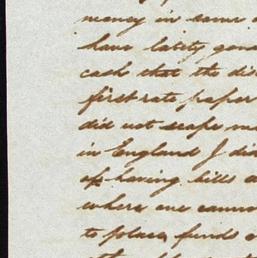 money in some
have lately gone
cash that the dis
first rate paper
did not scape me
in England I did
of having bills a
where one cannot
to place funds o